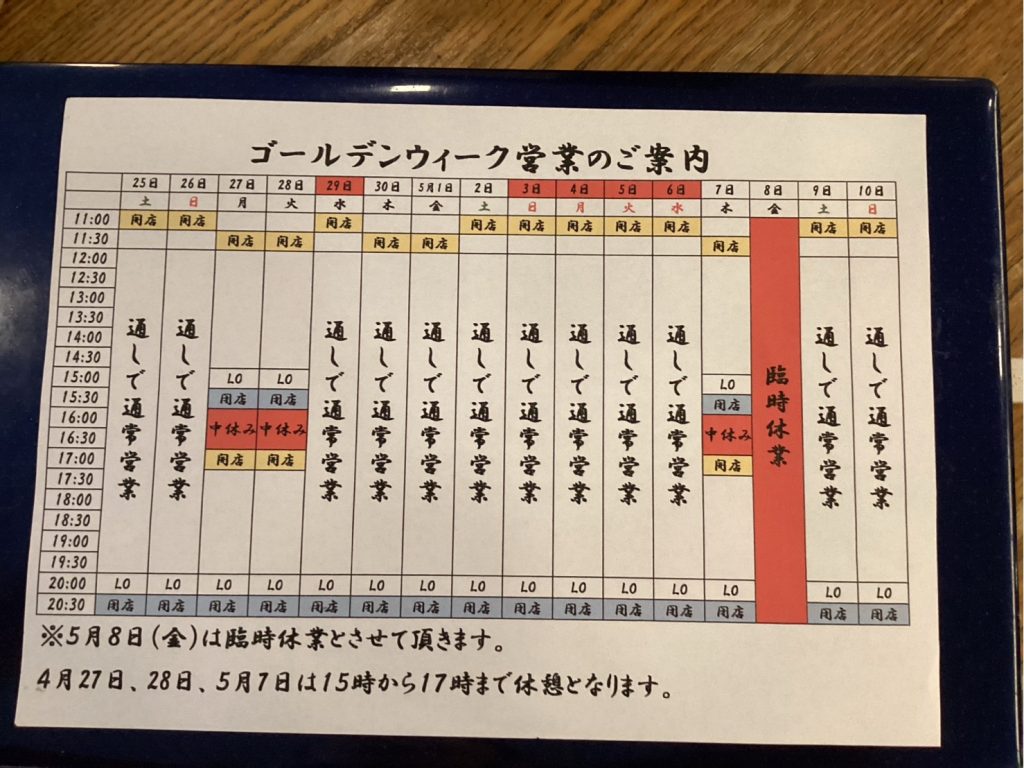 ゴールデンウィーク営業のご案内
25日 26日 27日 28日 29日 30日 5月1日 2日 3日 4日 5日 6日 7日 8日 9日 10日
土 日 月 火 水 木 金 土 日 月 火 水 木 金 土 日
11:00 開店 開店 開店 開店 開店 開店 開店 開店 開店 開店
11:30 開店 開店 開店 開店 開店
12:00
12:30
13:00
13:30
14:00
14:30
15:00 LO LO LO
15:30 閉店 閉店 閉店
16:00
16:30
中休み 中休み 中休み
17:00 開店 開店 開店
17:30
18:00
18:30
19:00
19:30
通しで通常営業 通しで通常営業 通しで通常営業 通しで通常営業 通しで通常営業 通しで通常営業 通しで通常営業 通しで通常営業 通しで通常営業 通しで通常営業 臨時休業 通しで通常営業 通しで通常営業
20:00 LO LO LO LO LO LO LO LO LO LO LO LO LO LO LO
20:30 閉店 閉店 閉店 閉店 閉店 閉店 閉店 閉店 閉店 閉店 閉店 閉店 閉店 閉店 閉店
※5月8日(金)は臨時休業とさせて頂きます。
4月27日、28日、5月7日は15時から17時まで休憩となります。